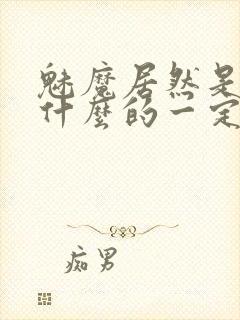 魅魔居然是
什麼的一定
痴男